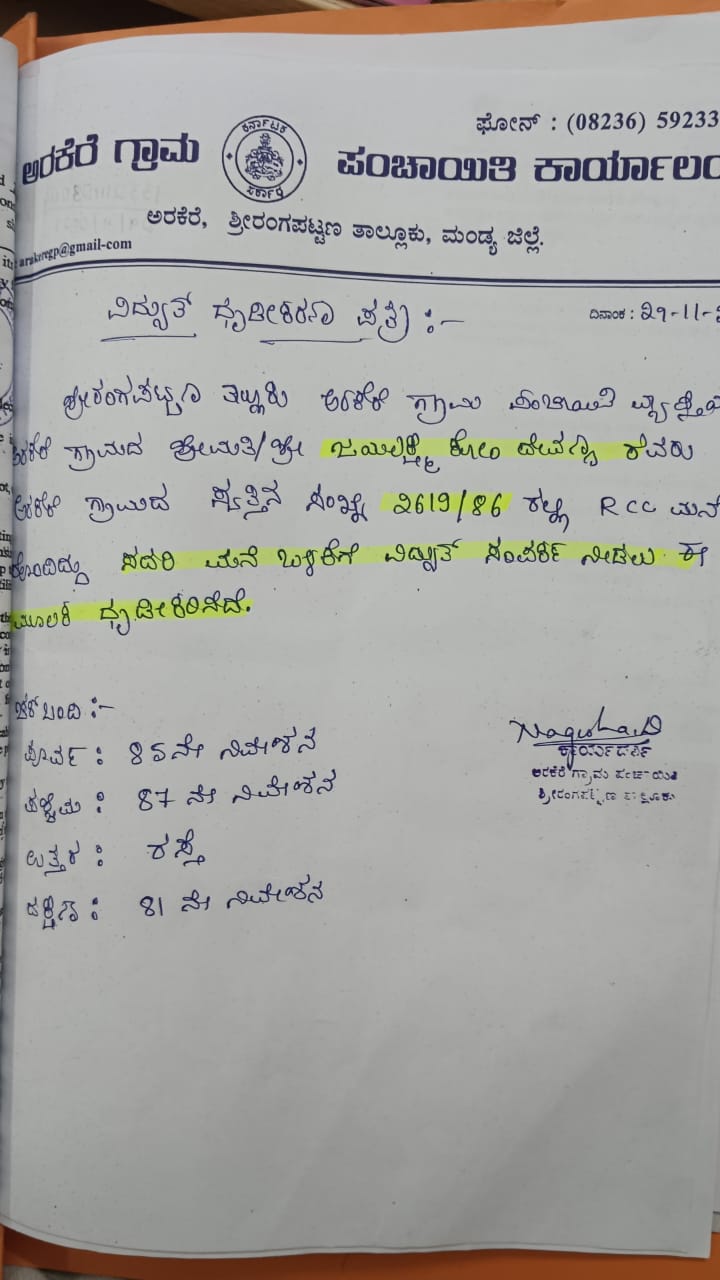 ಫೋನ್ : (08236) 59233
ಅರಕೆರೆ ಗ್ರಾಮ ಪಂಚಾಯಿತಿ ಕಾರ್ಯಾಲಯ
ಕರ್ನಾಟಕ ಸರ್ಕಾರ
ಅರಕೆರೆ, ಶ್ರೀರಂಗಪಟ್ಟಣ ತಾಲ್ಲೂಕು, ಮಂಡ್ಯ ಜಿಲ್ಲೆ.
arakeregp@gmail-com
ವಿದ್ಯುತ್ ಧೃಡೀಕರಣ ಪತ್ರ :-
ದಿನಾಂಕ : 29-11-
ಶ್ರೀರಂಗಪಟ್ಟಣ ತಾಲ್ಲೂಕು ಅರಕೆರೆ ಗ್ರಾಮ ಪಂಚಾಯಿತಿ
ಅರಕೆರೆ ಗ್ರಾಮದ ಶ್ರೀಮತಿ/ಶ್ರೀ ಜಯಲಕ್ಷ್ಮಿ ಕೋಂ ದೇವಣ್ಣ ರವರು
ಅರಕೆರೆ ಗ್ರಾಮದ ಸ್ವತ್ತಿನ ಸಂಖ್ಯೆ 2619/86 ರಲ್ಲಿ RCC ಮನೆ
ಹೊಂದಿದ್ದು ಸದರಿ ಮನೆ ಬಳಕೆಗೆ ವಿದ್ಯುತ್ ಸಂಪರ್ಕ ನೀಡಲು ಈ
ಮೂಲಕ ಧೃಡೀಕರಿಸಿದೆ.
ಚಕ್ ಬಂದಿ :-
ಪೂರ್ವ : 85ನೇ ನಿವೇಶನ
ಪಶ್ಚಿಮ : 87 ನೇ ನಿವೇಶನ
ಉತ್ತರ : ರಸ್ತೆ
ದಕ್ಷಿಣ : 81 ನೇ ನಿವೇಶನ
ಕಾರ್ಯದರ್ಶಿ
ಅರಕೆರೆ ಗ್ರಾಮ ಪಂಚಾಯಿತಿ
ಶ್ರೀರಂಗಪಟ್ಟಣ ತಾಲ್ಲೂಕು